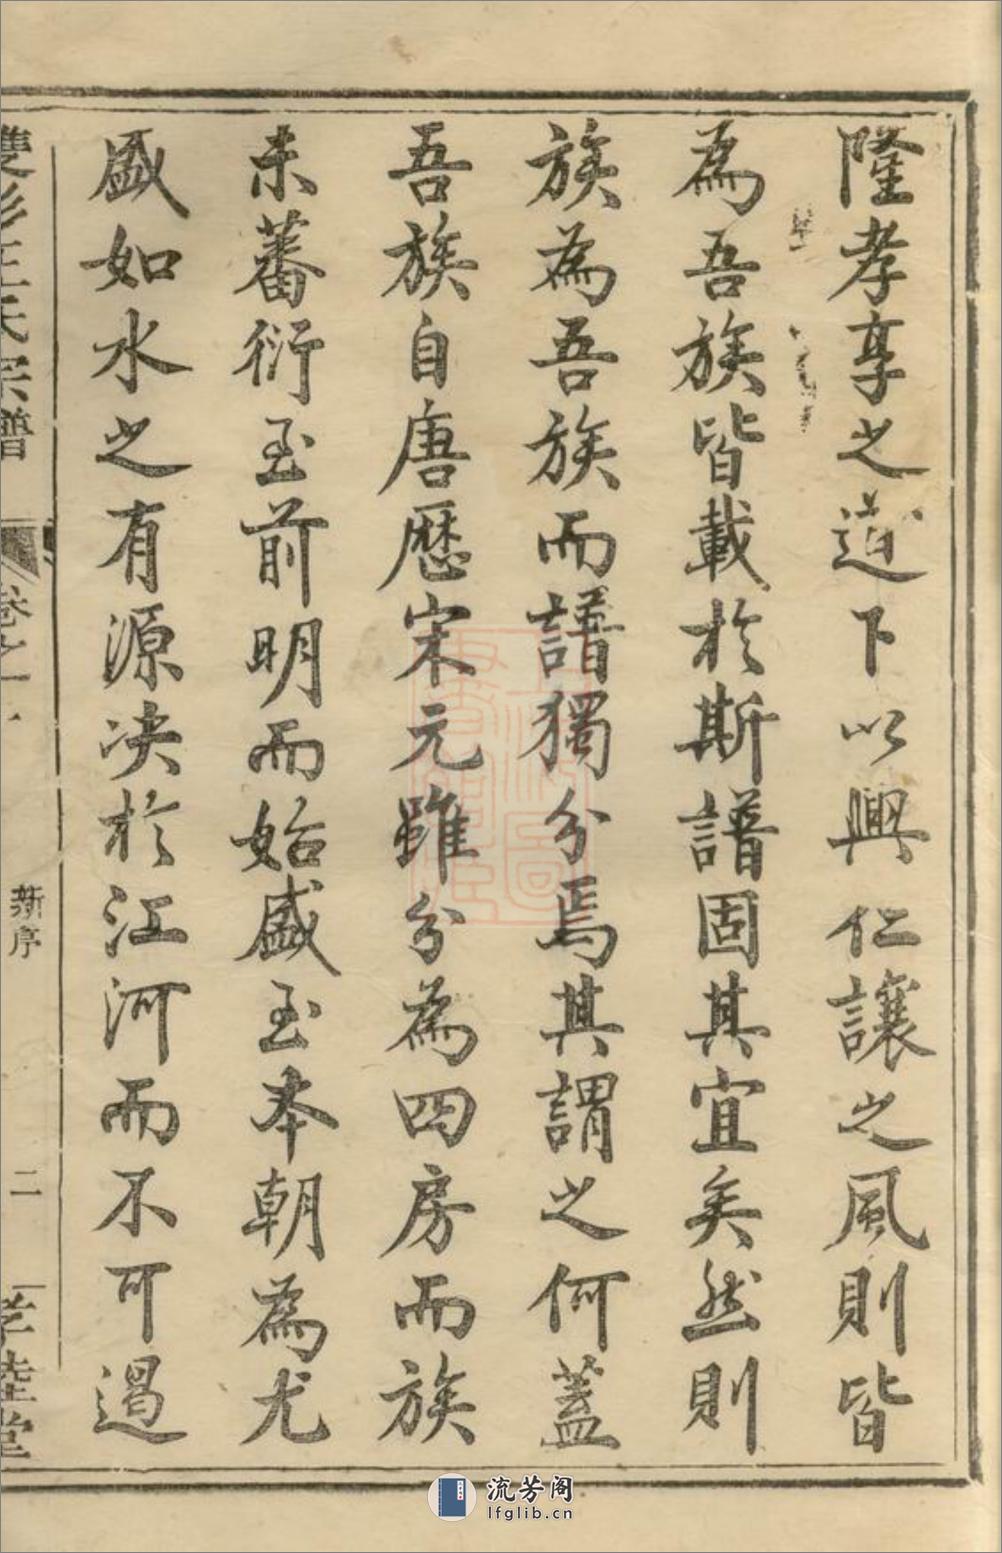 隆孝享之道下以興仁讓之風則皆
為吾族皆載於斯譜固其宜矣然則
族為吾族而譜獨分焉其謂之何蓋
吾族自唐歷宋元雖分為四房而族
未蕃衍至前明而始盛至本朝為尤
盛如水之有源决於江河而不可遏
雙杉王氏宗譜
卷之一
新序
二
孝睦堂
流芳阁
lfglib.cn